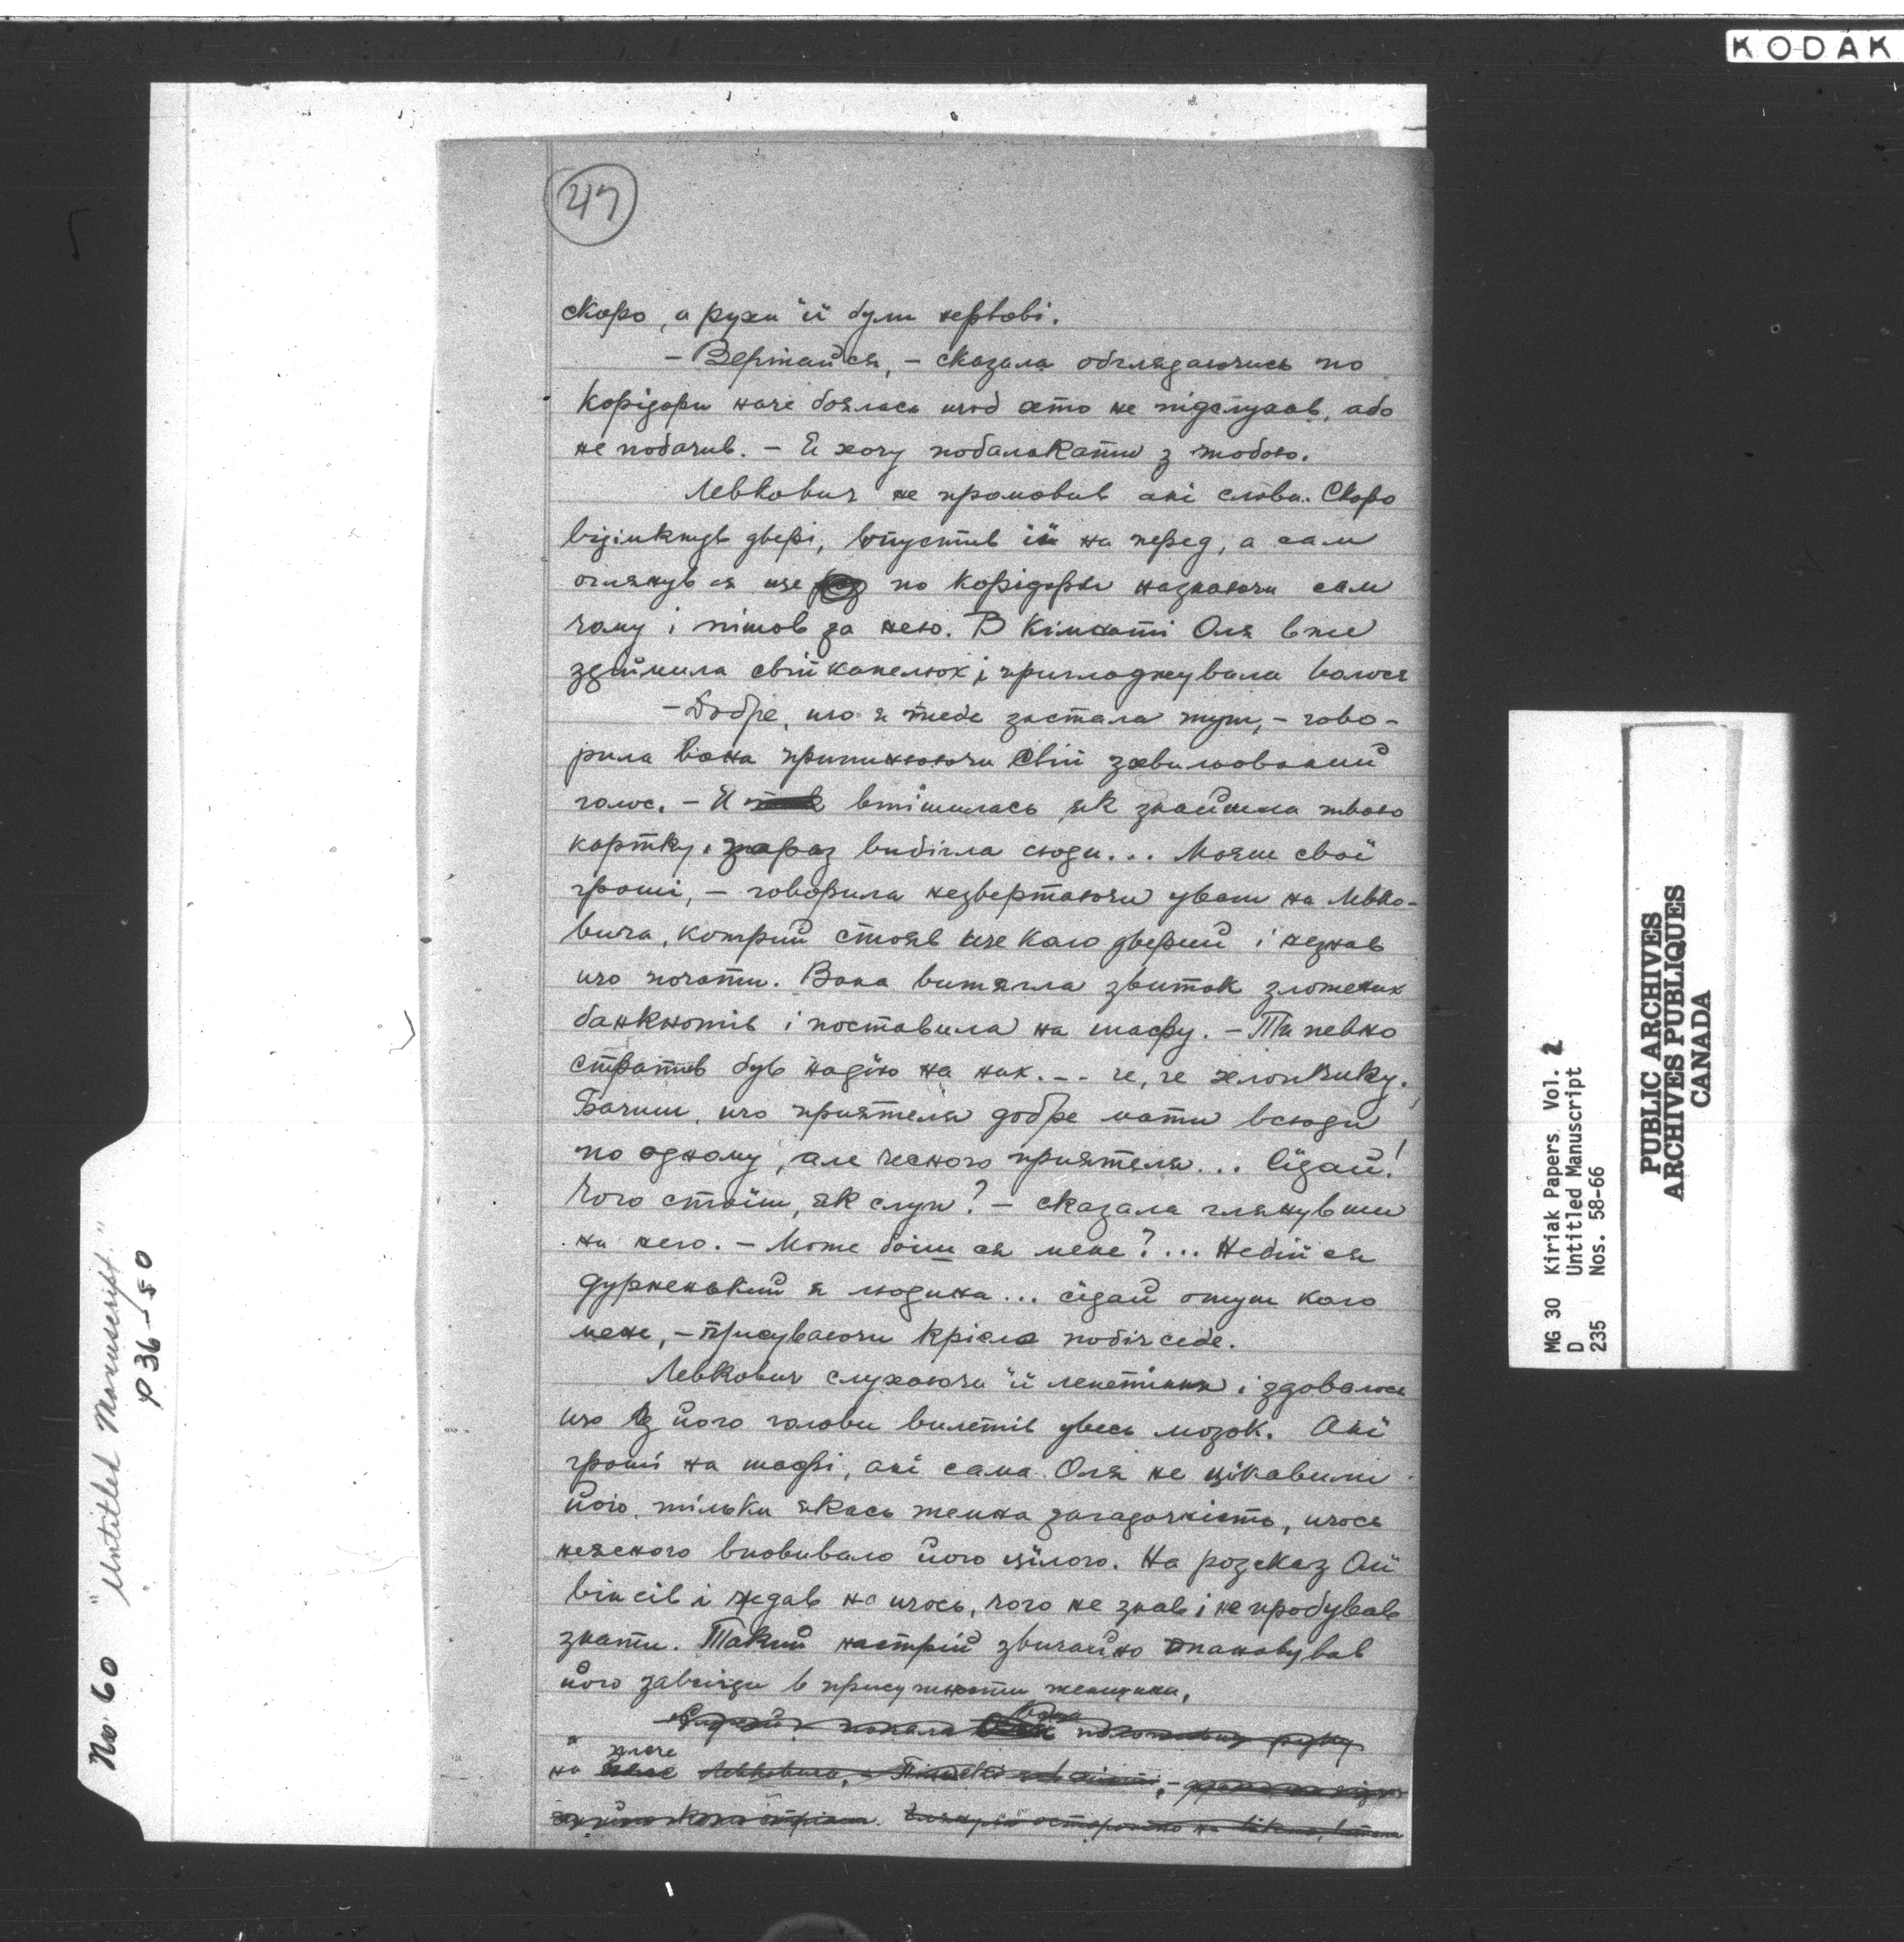 KODAK
47
скоро, а рухи її були нервові.
– Вертайся, – сказала обглядаючись по
корідори наче боялась щоб хто не підслухав, або
не побачив. – Я хочу побалакати з тобою.
Левкович не промовив ані слова. Скоро
відімкнув двері, впустив її на перед, а сам
оглянув ся ще по корідори незнаючи сам
чому і пішов за нею. В кімнаті Оля вже
здіймила свій капелюх і пригладжувала волося
– Добре, що я тебе застала тут, – гово-
рила вона принижаючи свій звильований
голос. – Я втішилась як знайшла твою
картку, зараз вибігла сюди... Маєш свої
гроші, – говорила незвертаючи уваги на Левко-
вича, котрий стояв ще коло дверий і незнав
що почати. Вона витягла звиток зложених
банкнотів і поставила на шафу. – Ти певно
стратив був надію на них... ге, ге хлопчику.
Бачиш, що приятеля добре мати всюди
по одному, але чесного приятеля... Сідай!
Чого стоїш, як слуп? – сказала глянувши
на него. – Може боїш ся мене?... Небій ся
дурненький я людина... сідай отут коло
мене, – присуваючи крісла побіч себе.
Левкович слухаючи її лепетіння і здавалось
що з його голови вилетів увесь мозок. Ані
гроші на шафі, ані сама Оля не цікавили
його, тільки якась темна загадочність, щось
неясного вповивало його цілого. На розказ Олї
він сів і ждав на щось, чого не знав і не пробував
знати. Такий настрій звичайно опановував
його завсігди в присутности женщини,
на плече Левковича,
No 60 "Untitled Manuscript"
p 36–50
MG 30 Kiriak Papers Vol. 2
D Untitled Manuscript
235 Nos. 58-66
PUBLIC ARCHIVES
ARCHIVES PUBLIQUES
CANADA